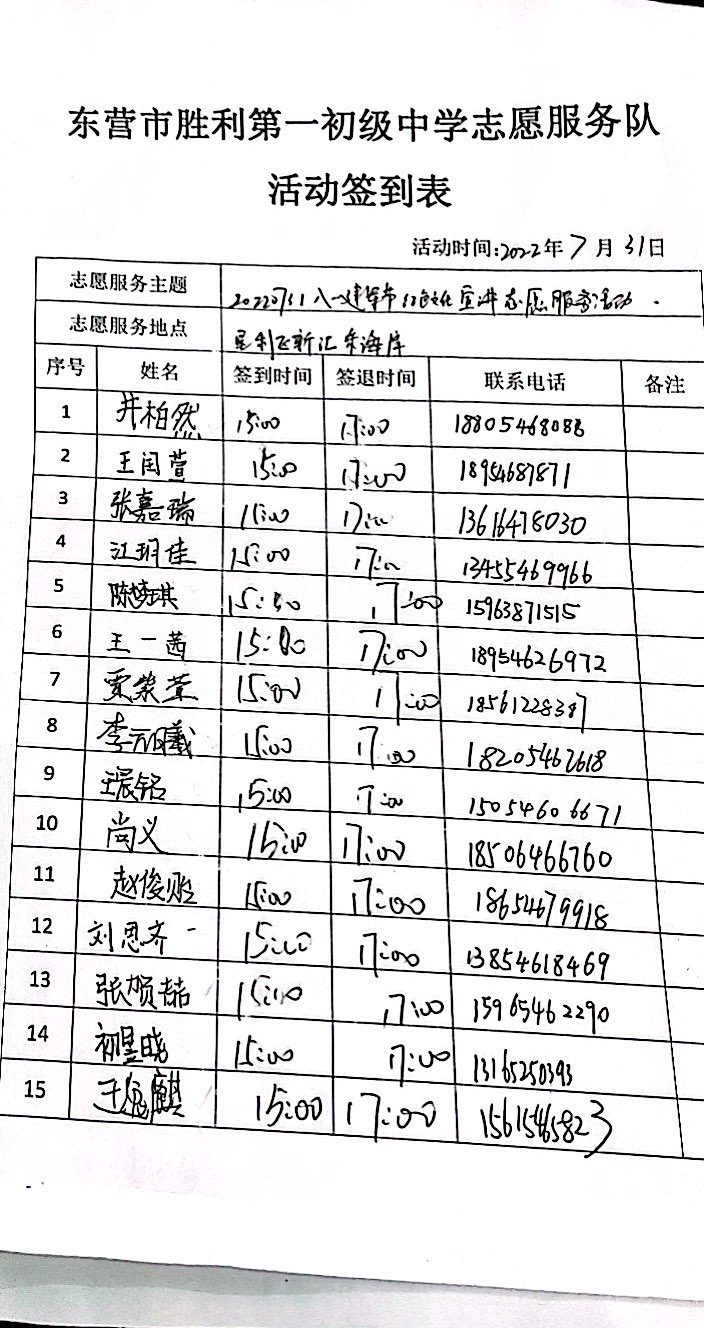 东营市胜利第一初级中学志愿服务队
活动签到表
活动时间:2022年7月31日
志愿服务主题 20220731八一建军节红色文化宣讲志愿服务活动.
志愿服务地点 垦利区新汇东海岸
序号 姓名 签到时间 签退时间 联系电话 备注
1 井柏然 15:00 17:00 18805468088
2 王闰萱 15:00 17:00 18954687871
3 张嘉瑞 15:00 17:00 13616478030
4 江玥佳 15:00 17:00 13455469966
5 陈梦琪 15:00 17:00 15963871515
6 王一茜 15:00 17:00 18954626972
7 贾荣萱 15:00 17:00 18561228387
8 李 曦 15:00 17:00 18205467618
9 王宸铭 15:00 17:00 15054606671
10 尚义 15:00 17:00 18506466760
11 赵俊 15:00 17:00 18654679918
12 刘恩齐 15:00 17:00 13854618469
13 张贺喆 15:00 17:00 15965462290
14 初昱晓 15:00 17:00 13165250393
15 王 麒 15:00 17:00 15615465823